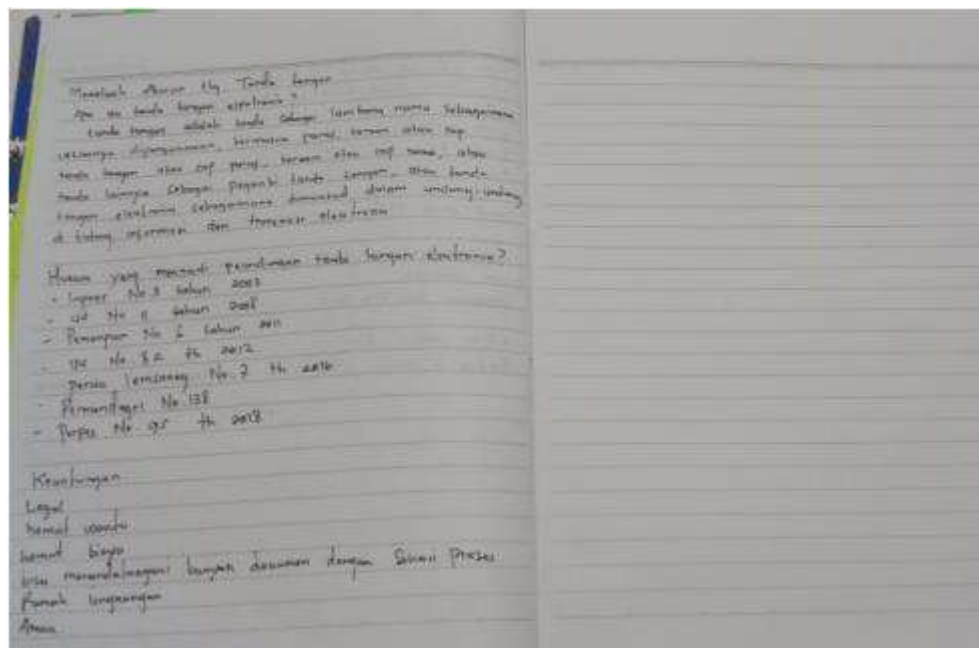 Menelaah Aturan ttg Tanda tangan
Apa itu tanda tangan elektronik?
tanda tangan adalah tanda sebagai lambang nama sebagaimana
lazimnya dipergunakan, termasuk paraf, teraan atau cap
tanda tangan atau cap paraf, teraan atau cap nama, atau
tanda lainnya sebagai pengganti tanda tangan, atau tanda
tangan elektronik sebagaimana dimaksud dalam undang-undang
di bidang informasi dan transaksi elektronik
Hukum yang menjadi tanda tangan elektronik?
- Inpres No 3 tahun 2003
- UU No 11 tahun 2008
- Permenpan No 6 tahun 2011
- No 82 th 2012
- Perka lemsaneg No 7 th 2016
- Permendagri No 138
- Perpres No 95 th 2018
Keuntungan
Legal
hemat waktu
hemat biaya
bisa menandatangani banyak dokumen dengan Sekali Proses
Ramah lingkungan
Aman